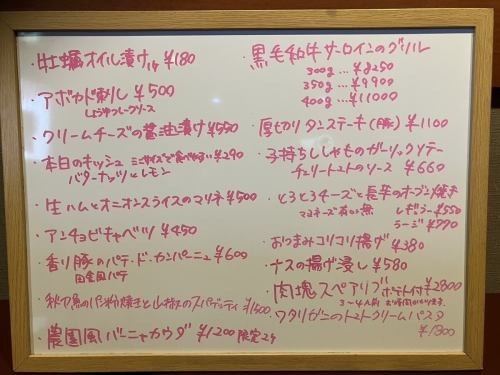 ・牡蠣オイル漬け ¥180
・アボカド刺し ¥500
しょうゆフレークソース
・クリームチーズの醤油漬け ¥550
・本日のキッシュ ミニサイズで食べやすい ¥290
バターナッツとレモン
・生ハムとオニオンスライスのマリネ ¥500
・アンチョビキャベツ ¥450
・香り豚のパテ・ド・カンパーニュ ¥600
田舎風パテ
・秋刀魚の スパゲッティ ¥1500
・農園風バーニャカウダ ¥1200 限定2ケ
・黒毛和牛サーロインのグリル
300g …¥8250
350g …¥9900
400g …¥11000
・厚切りタンステーキ(豚) ¥1100
・子持ちししゃものガーリックソテー
チェリートマトのソース ¥660
・とろとろチーズと長芋のオーブン焼き
マヨネーズ 有or無 レギュラー ¥550
ラージ ¥770
・おつまみコリコリ揚げ ¥380
・ナスの揚げ浸し ¥580
・肉塊スペアリブ ポテト付 ¥2800
3〜4人前 お時間かかります
・ワタリガニのトマトクリームパスタ
¥1800